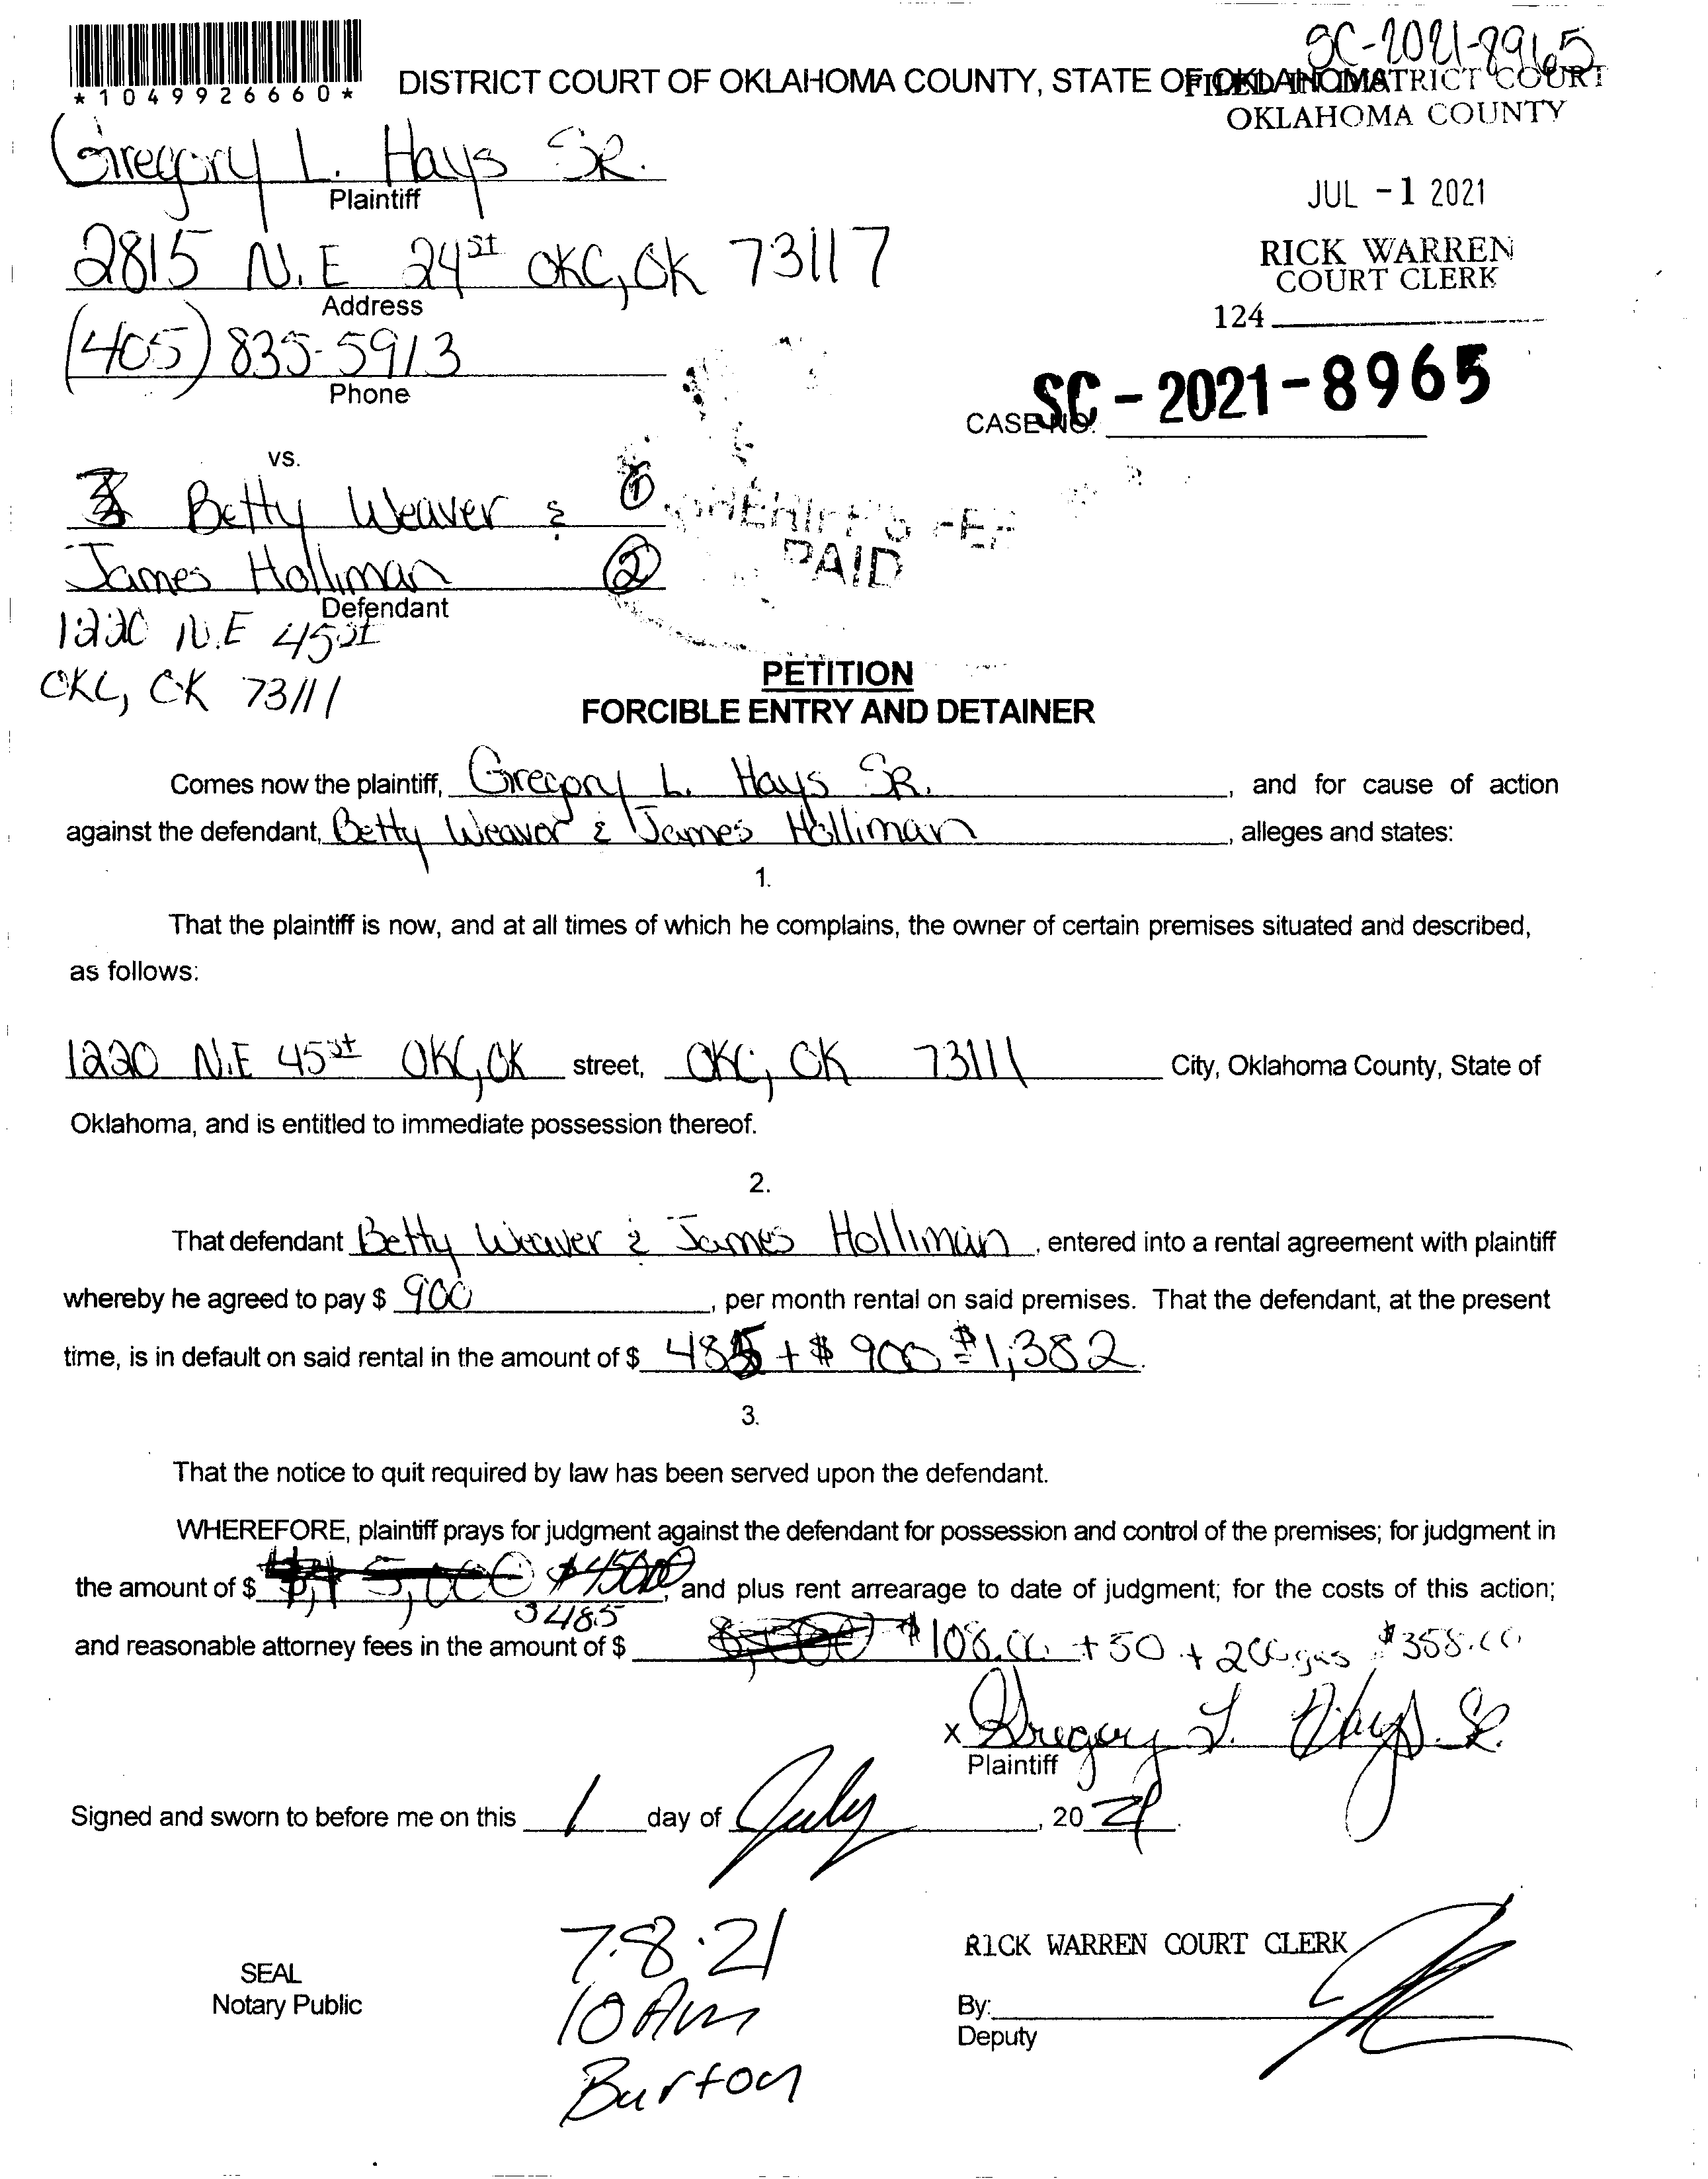 SC-2021-8965
*1049926660*
DISTRICT COURT OF OKLAHOMA COUNTY, STATE OF OKLAHOMA
FILED IN DISTRICT COURT
OKLAHOMA COUNTY
Gregory L. Hays SR.
Plaintiff
JUL -1 2021
2815 N.E 24st OKC, OK 73117
Address
RICK WARREN
COURT CLERK
124
(405) 835-5913
Phone
CASE NO. SC-2021-8965
vs.
Betty Weaver & 1
SHERIFF'S FEE
PAID
James Holliman 2
Defendant
1220 N.E 45st
OKC, OK 73111
PETITION
FORCIBLE ENTRY AND DETAINER
Comes now the plaintiff, Gregory L. Hays SR. , and for cause of action
against the defendant, Betty Weaver & James Holliman , alleges and states:
1.
That the plaintiff is now, and at all times of which he complains, the owner of certain premises situated and described,
as follows:
1220 N.E 45st OKC, OK street, OKC, OK 73111 City, Oklahoma County, State of
Oklahoma, and is entitled to immediate possession thereof.
2.
That defendant Betty Weaver & James Holliman , entered into a rental agreement with plaintiff
whereby he agreed to pay $ 900 , per month rental on said premises. That the defendant, at the present
time, is in default on said rental in the amount of $ 485 + $ 900 = $1,382.
3.
That the notice to quit required by law has been served upon the defendant.
WHEREFORE, plaintiff prays for judgment against the defendant for possession and control of the premises; for judgment in
the amount of $ 5,000 $4500 , and plus rent arrearage to date of judgment; for the costs of this action;
3485
and reasonable attorney fees in the amount of $ $108.00 + 50 + 200 gas $358.00
x Gregory L. Hays Sr.
Plaintiff
Signed and sworn to before me on this 1 day of July , 20 21.
7.8.21
10 Am
Burton
SEAL
Notary Public
RICK WARREN COURT CLERK
By:
Deputy